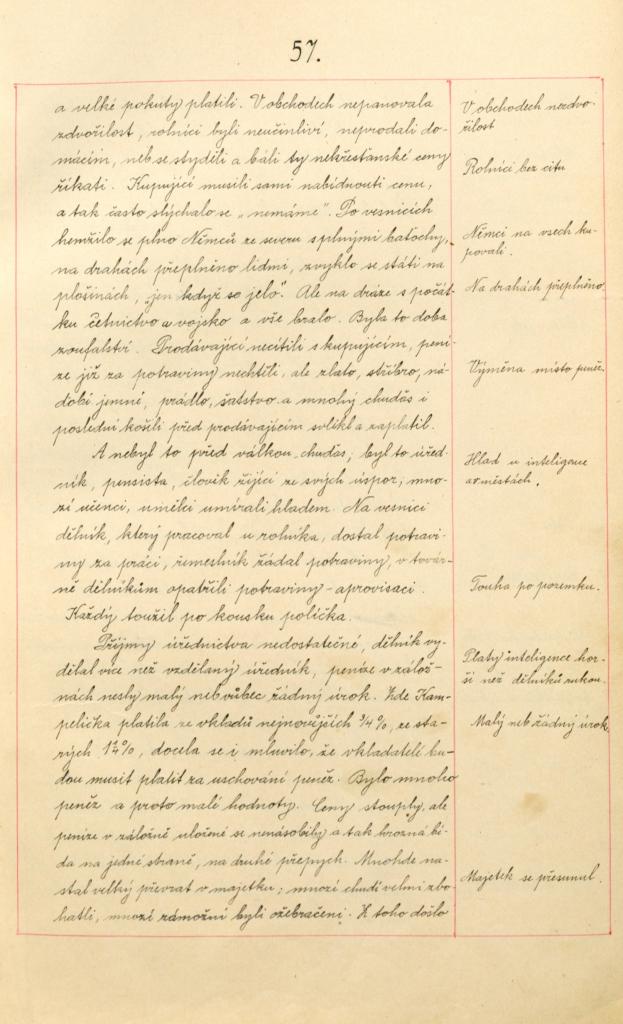 57.
a velké pokuty platili. V obchodech nepanovala
zdvořilost, rolníci byli neučinliví, neprodali do-
mácím, neb se styděli a báli ty nekřesťanské ceny
říkati. Kupující musili sami nabídnouti cenu,
a tak často slýchalo se „nemáme". Po vesnicích
hemžilo se plno Němců ze severu s plnými baťochy,
na drahách přeplněno lidmi, zvyklo se státi na
plošinách, „jen když se jelo". Ale na dráze s počát-
ku četnictvo a vojsko a vše bralo. Byla to doba
zoufalství. Prodávající necítili s kupujícím, pení-
ze již za potraviny nechtěli, ale zlato, stříbro, ná-
dobí jemné, prádlo, šatstvo a mnohý chudás i
poslední košili před prodávajícím svlékl a zaplatil.
A nebyl to před válkou chudás; byl to úřed-
ník, pensista, člověk žijící ze svých úspor; mno-
zí učenci, umělci umírali hladem. Na vesnici
dělník, který pracoval u rolníka, dostal potravi-
ny za práci, řemeslník žádal potraviny, v továr-
ně dělníkům opatřili potraviny - aprovisaci.
Každý toužil po kousku políčka.
Příjmy úřednictva nedostatečné, dělník vy-
dělal více než vzdělaný úředník, peníze v zálož-
nách nesly malý neb vůbec žádný úrok. Zde Kam-
pelička platila ze vkladů nejnovějších 3/4%, ze sta-
rých 1 2%, docela se i mluvilo, že vkladatelé bu-
dou musit platit za uschování peněz. Bylo mnoho
peněz a proto malé hodnoty. Ceny stouply, ale
peníze v záložně uložené se nenásobily a tak hrozná bí-
da na jedné straně, na druhé přepych. Mnohde na-
stal velký převrat v majetku; mnozí chudí velmi zbo-
hatli, mnozí zámožní byli ožebračeni. K toho došlo
V obchodech nezdvo-
řilost
Rolníci bez citu
Němci na vsech ku-
povali.
Na drahách přeplněno
Výměna místo peněz.
Hlad u inteligence
a v městách.
Touha po pozemku.
Platy inteligence hor-
ší než dělníků rukou.
Malý neb žádný úrok.
Majetek se přesunul.